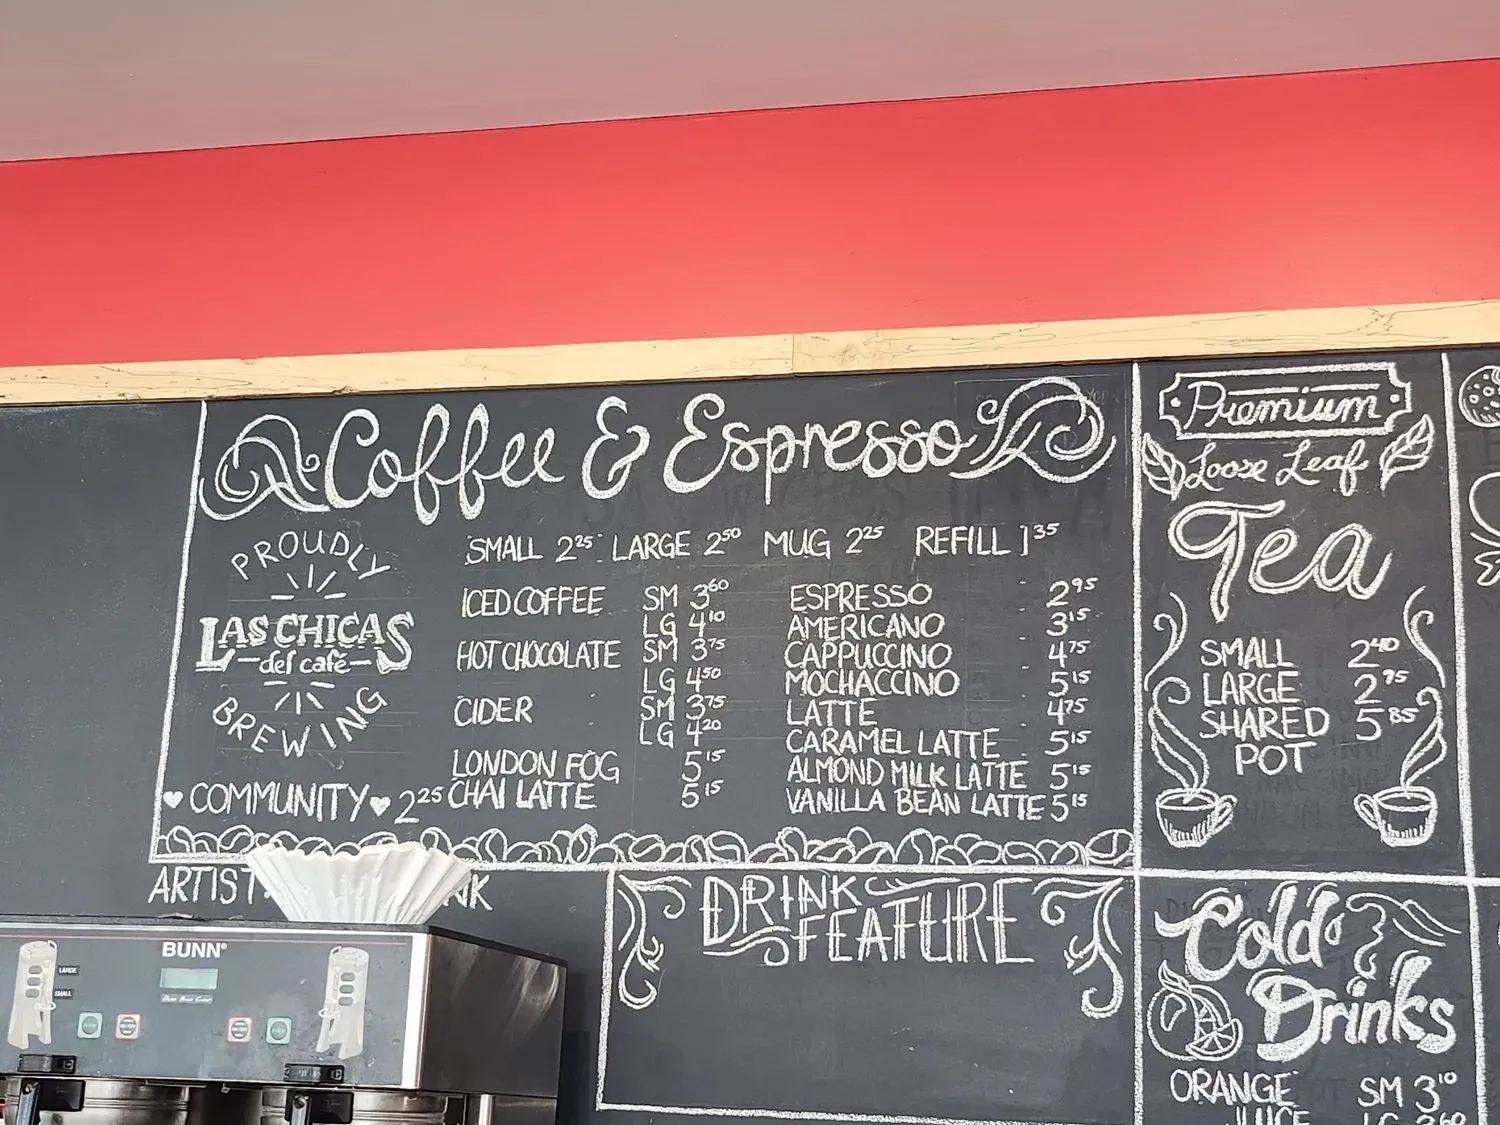 Coffee & Espresso
PROUDLY
LAS CHICAS
del café
BREWING
♥ COMMUNITY ♥ 2 25
SMALL 2 25 LARGE 2 50 MUG 2 25 REFILL 1 35
ICED COFFEE SM 3 60
LG 4 10
HOT CHOCOLATE SM 3 75
LG 4 50
CIDER SM 3 75
LG 4 20
LONDON FOG 5 15
CHAI LATTE 5 15
ESPRESSO 2 95
AMERICANO 3 15
CAPPUCCINO 4 75
MOCHACCINO 5 15
LATTE 4 75
CARAMEL LATTE 5 15
ALMOND MILK LATTE 5 15
VANILLA BEAN LATTE 5 15
Premium
Loose Leaf
Tea
SMALL 2 40
LARGE 2 95
SHARED 5 85
POT
ARTIST
DRINK
FEATURE
Cold
Drinks
ORANGE SM 3 10
JUICE LG
BUNN
LARGE
SMALL